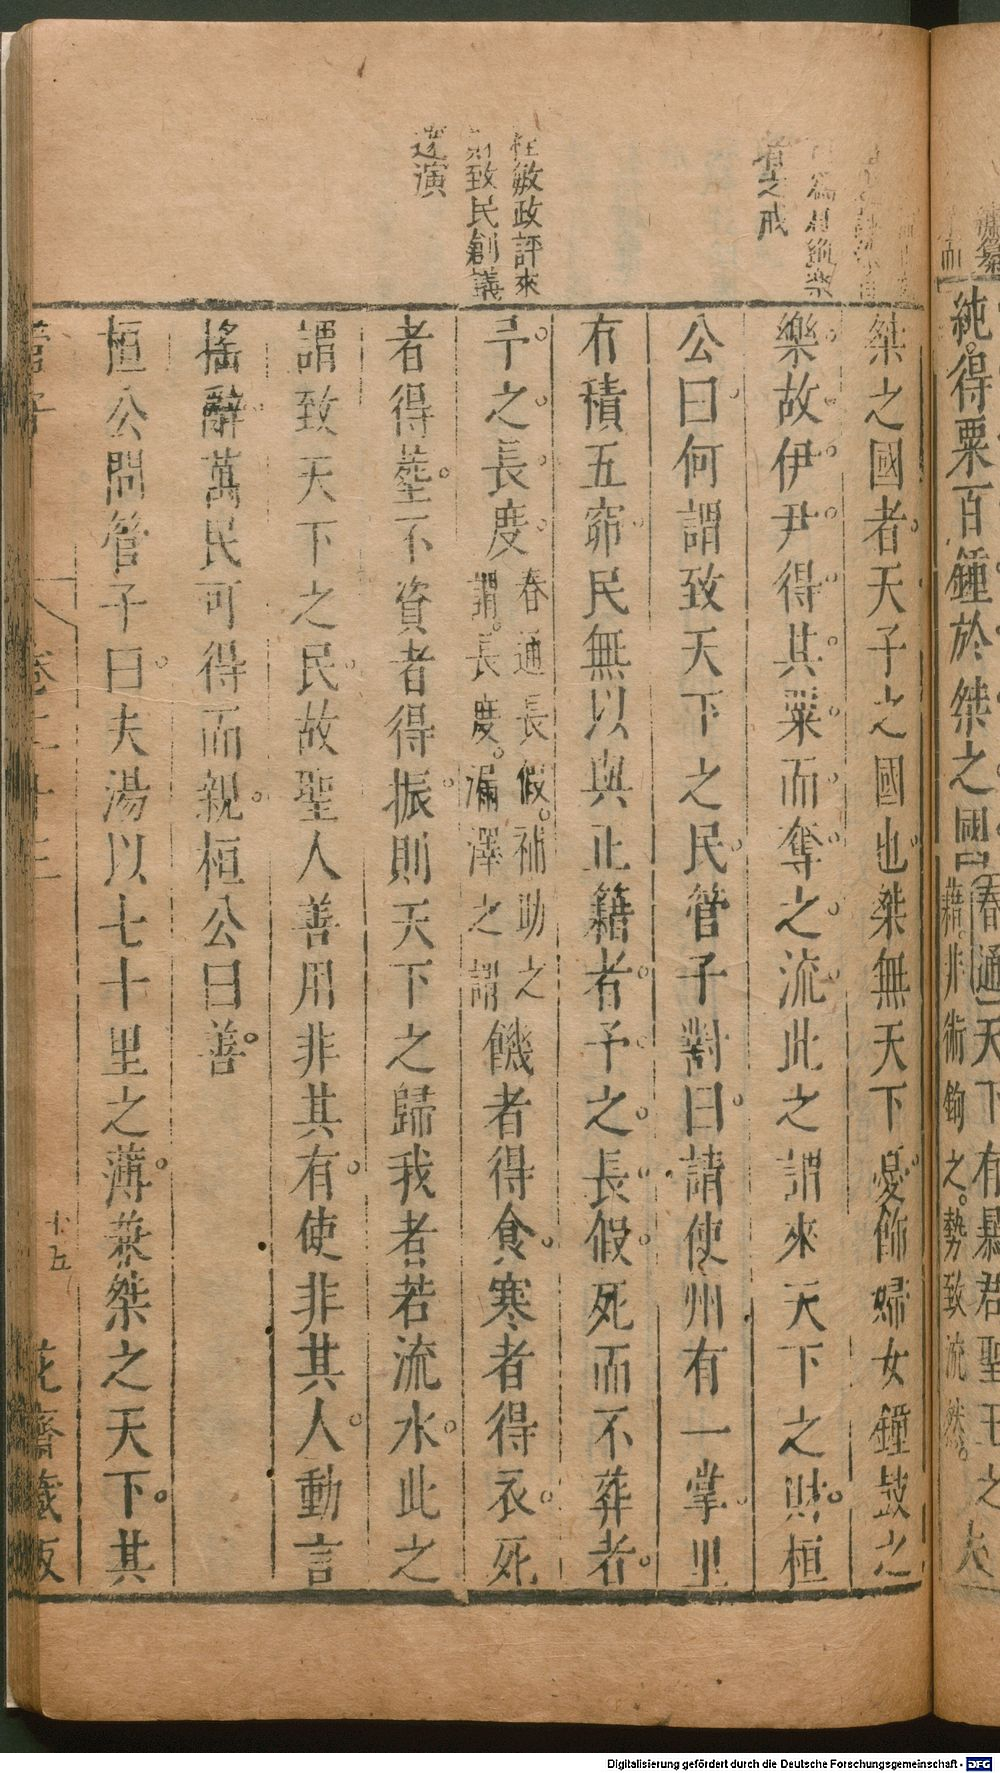 純得粟百鍾於桀之國
春通
天下有暴君聖王之
藉非術鉤之勢致流然
桀之國者天子之國也桀無天下憂飾婦女鐘鼓之
樂故伊尹得其粟而奪之流此之謂來天下之財桓
公曰何謂致天下之民管子對曰請使州有一掌里
有積五窌民無以與正籍者予之長假死而不葬者
予之長度
春通長假補助之
謂長度漏澤之謂
饑者得食寒者得衣死
者得塟不資者得振則天下之歸我者若流水此之
謂致天下之民故聖人善用非其有使非其人動言
搖辭萬民可得而親桓公曰善
桓公問管子曰夫湯以七十里之薄兼桀之天下其
者之戒
敏政評來
致民創議
遂演
管子
卷二十三
十五
花齋藏板
Digitalisierung gefördert durch die Deutsche Forschungsgemeinschaft - DFG